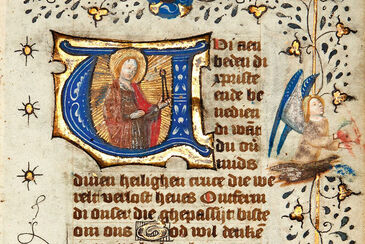 Wi aen
beden di
xpriste
ende be
nedien
di wāt
du oū
mids
dinen heilighen cruce die we
relt verlost heues Ontferm
di onser die ghepassijt biste
om ons God wil denkē